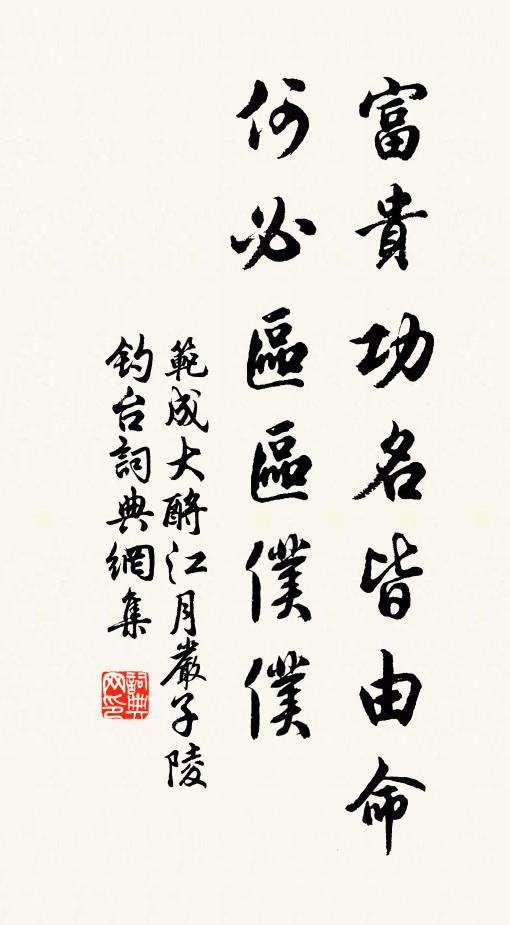 富貴功名皆由命
何必區區僕僕
範成大酹江月嚴子陵
釣台詞典網集
詞典
网印